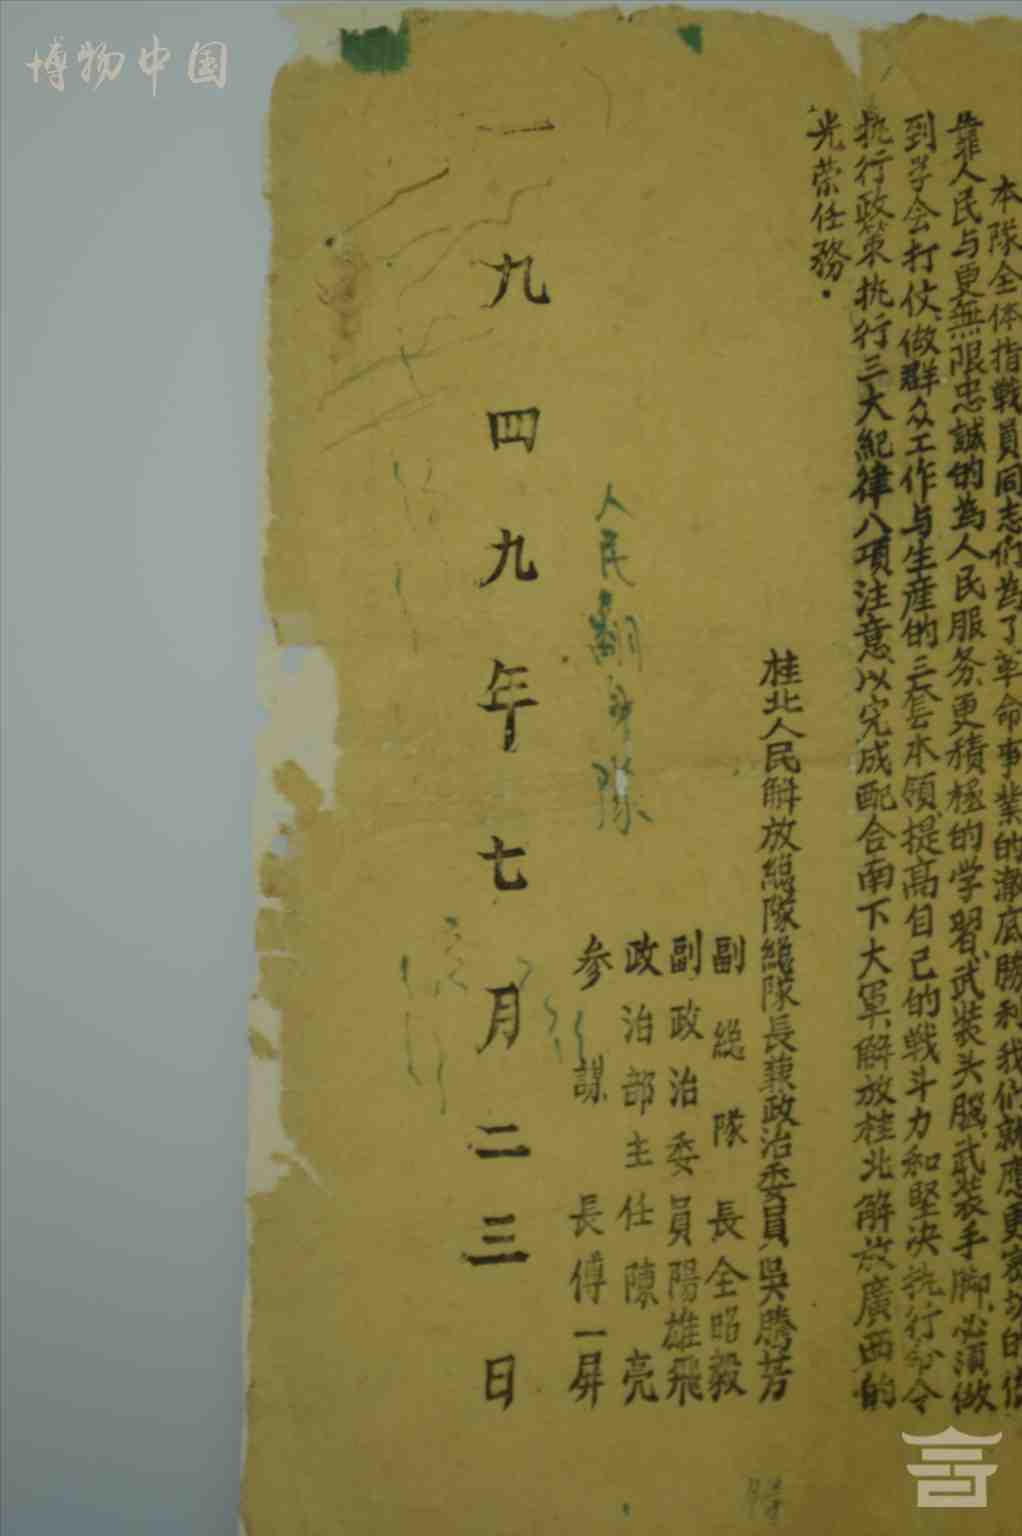 博物中国
本隊全体指戰員同志们為了革命事業的澈底勝利我们就應更密切的依
靠人民与更無限忠誠的為人民服务、更積極的学習、武装头腦、武装手脚、必須做
到学会打仗、做群众工作与生産的三套本領、提高自己的戰斗力和堅决执行命令
执行政策执行三大紀律八項注意、以完成配合南下大軍、解放桂北解放廣西的
光荣任務。
桂北人民解放總隊總隊長兼政治委員吳騰芳
副總隊長全昭毅
副政治委員陽雄飛
政治部主任陳亮
参謀長傅一屏
人民翻身隊
一九四九年七月二三日